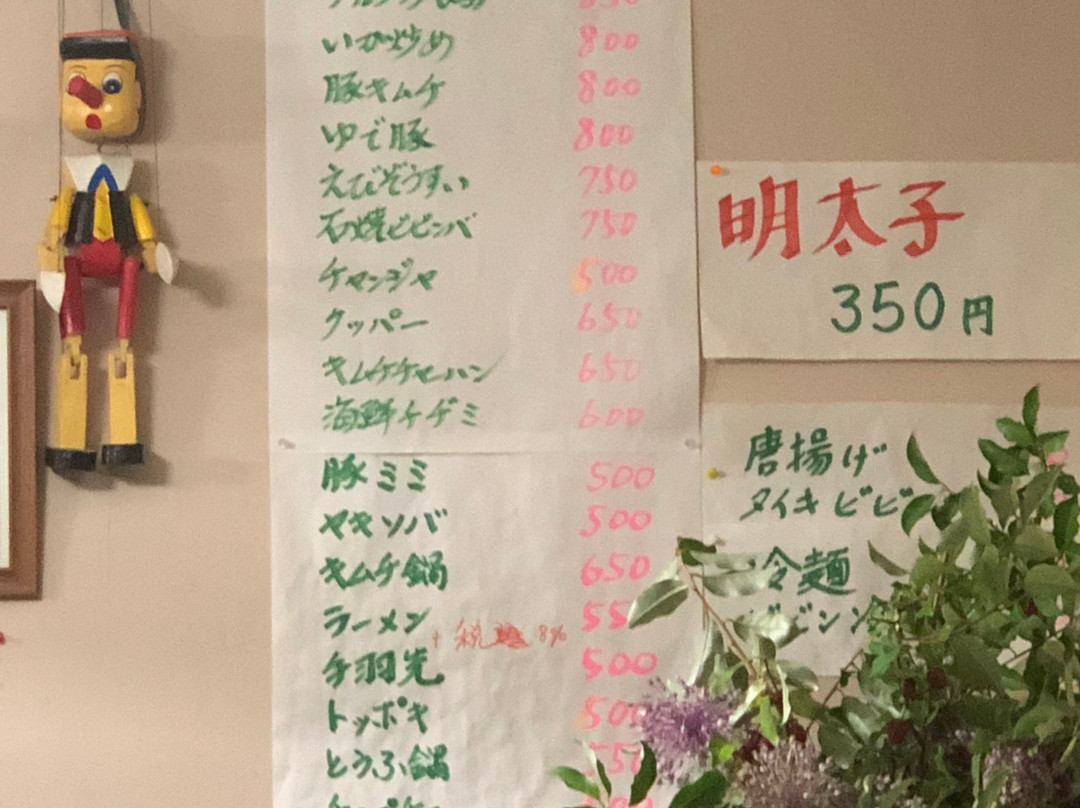 いか炒め 800
豚キムチ 800
ゆで豚 800
えびぞうすい 750
石焼ビビンバ 750
ケャンジャ 500
クッパー 650
キムチチャーハン 650
海鮮チヂミ 600
豚ミミ 500
ヤキソバ 500
キムチ鍋 650
ラーメン 55
+ 税込 8%
手羽先 500
トッポキ 500
とうふ鍋
明太子
350円
唐揚げ
タイキ ビビ
冷麺
ビビン